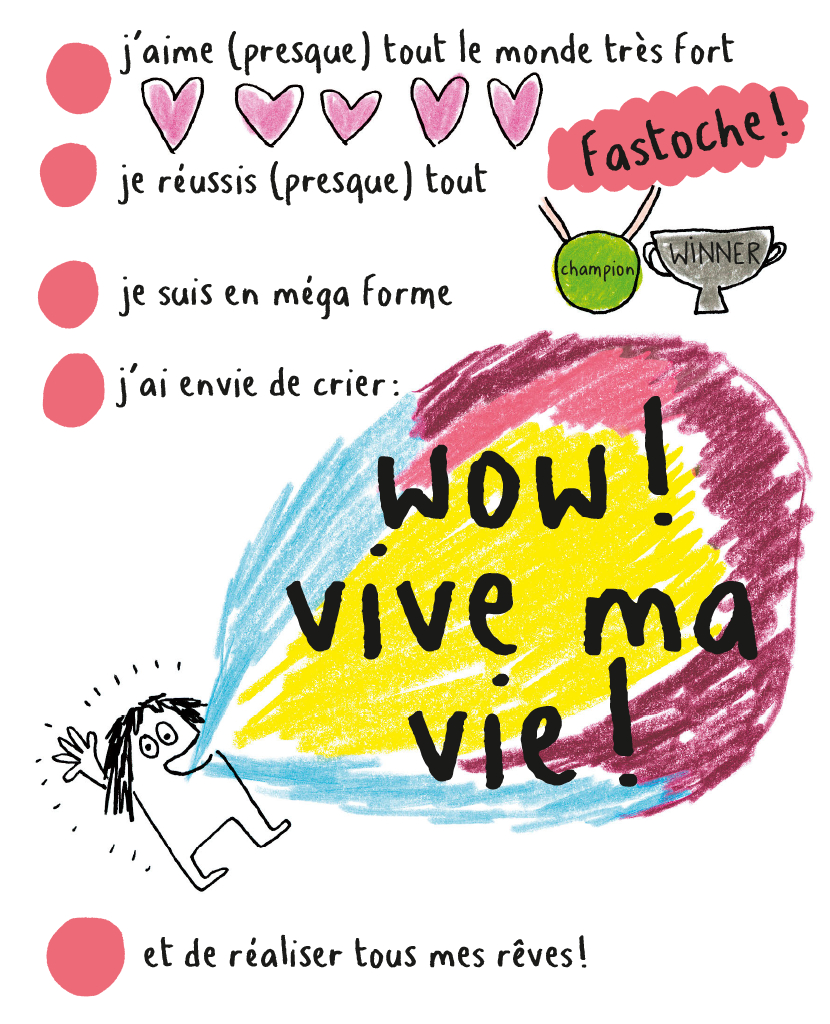 j'aime (presque) tout le monde très fort
Fastoche!
je réussis (presque) tout
champion
WINNER
je suis en méga forme
j'ai envie de crier:
wow!
vive ma
vie!
et de réaliser tous mes rêves!